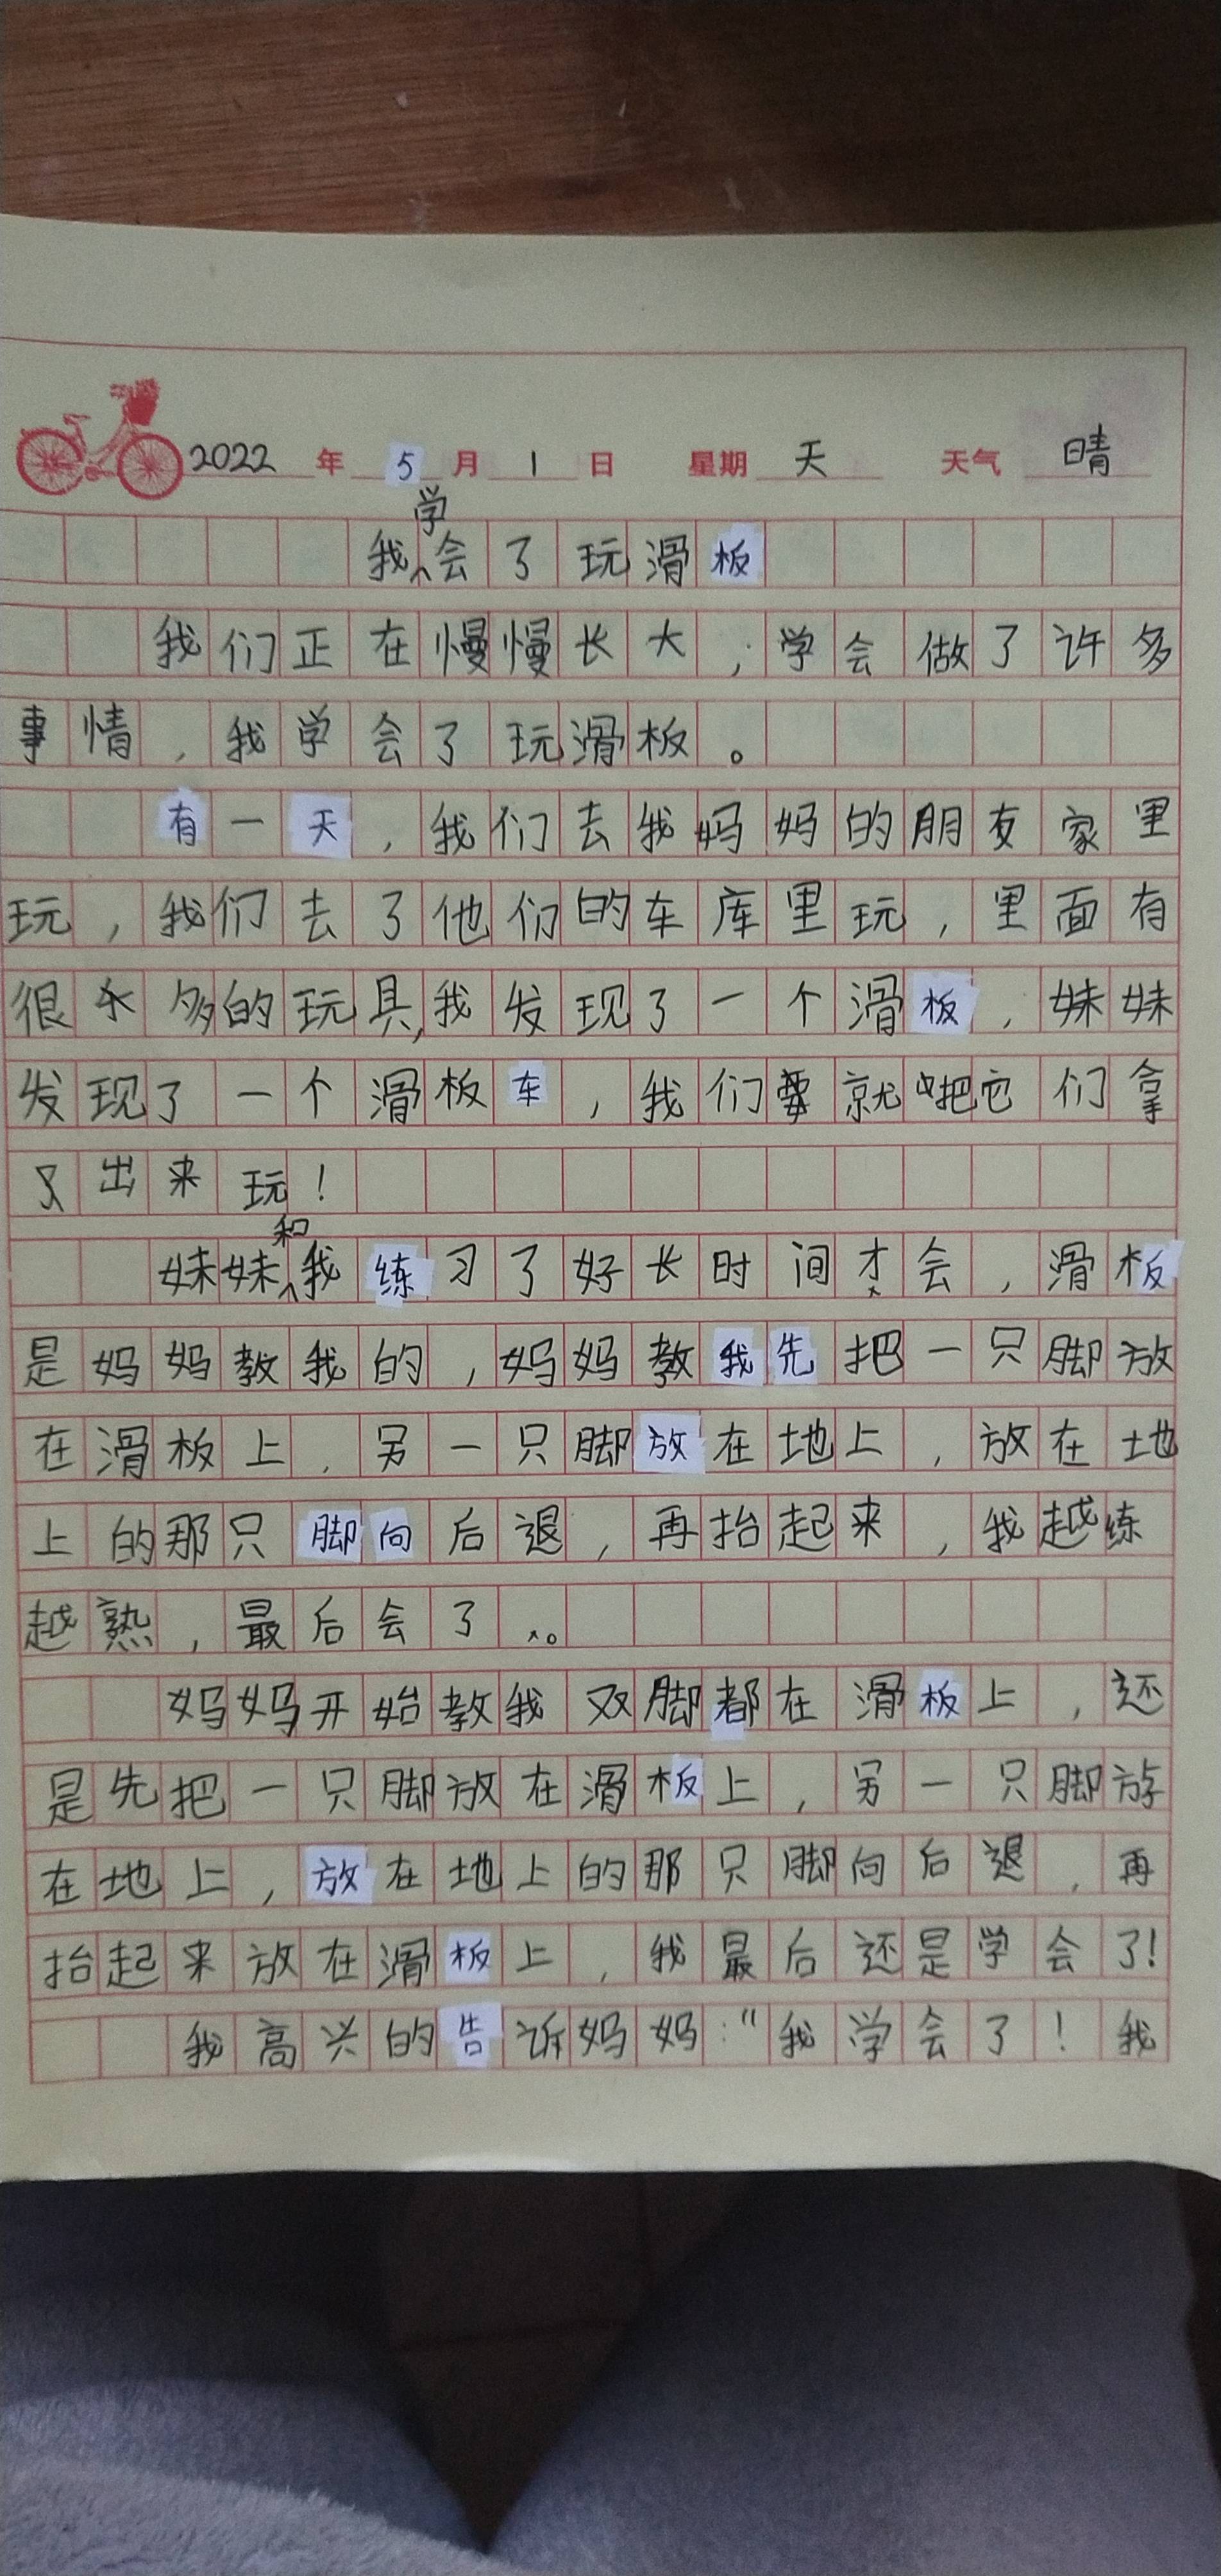 2022年5月1日 星期天 天气晴
我学会了玩滑板
我们正在慢慢长大，学会做了许多
事情，我学会了玩滑板。
有一天，我们去我妈妈的朋友家里
玩，我们去了他们的车库里玩，里面有
很多的玩具,我发现了一个滑板，妹妹
发现了一个滑板车，我们要就把它们拿
出来玩！
妹妹和我练习了好长时间才会，滑板
是妈妈教我的，妈妈教我先把一只脚放
在滑板上，另一只脚放在地上，放在地
上的那只脚向后退，再抬起来，我越练
越熟，最后会了。
妈妈开始教我双脚都在滑板上，还
是先把一只脚放在滑板上，另一只脚放
在地上，放在地上的那只脚向后退，再
抬起来放在滑板上，我最后还是学会了!
我高兴的告诉妈妈："我学会了！我